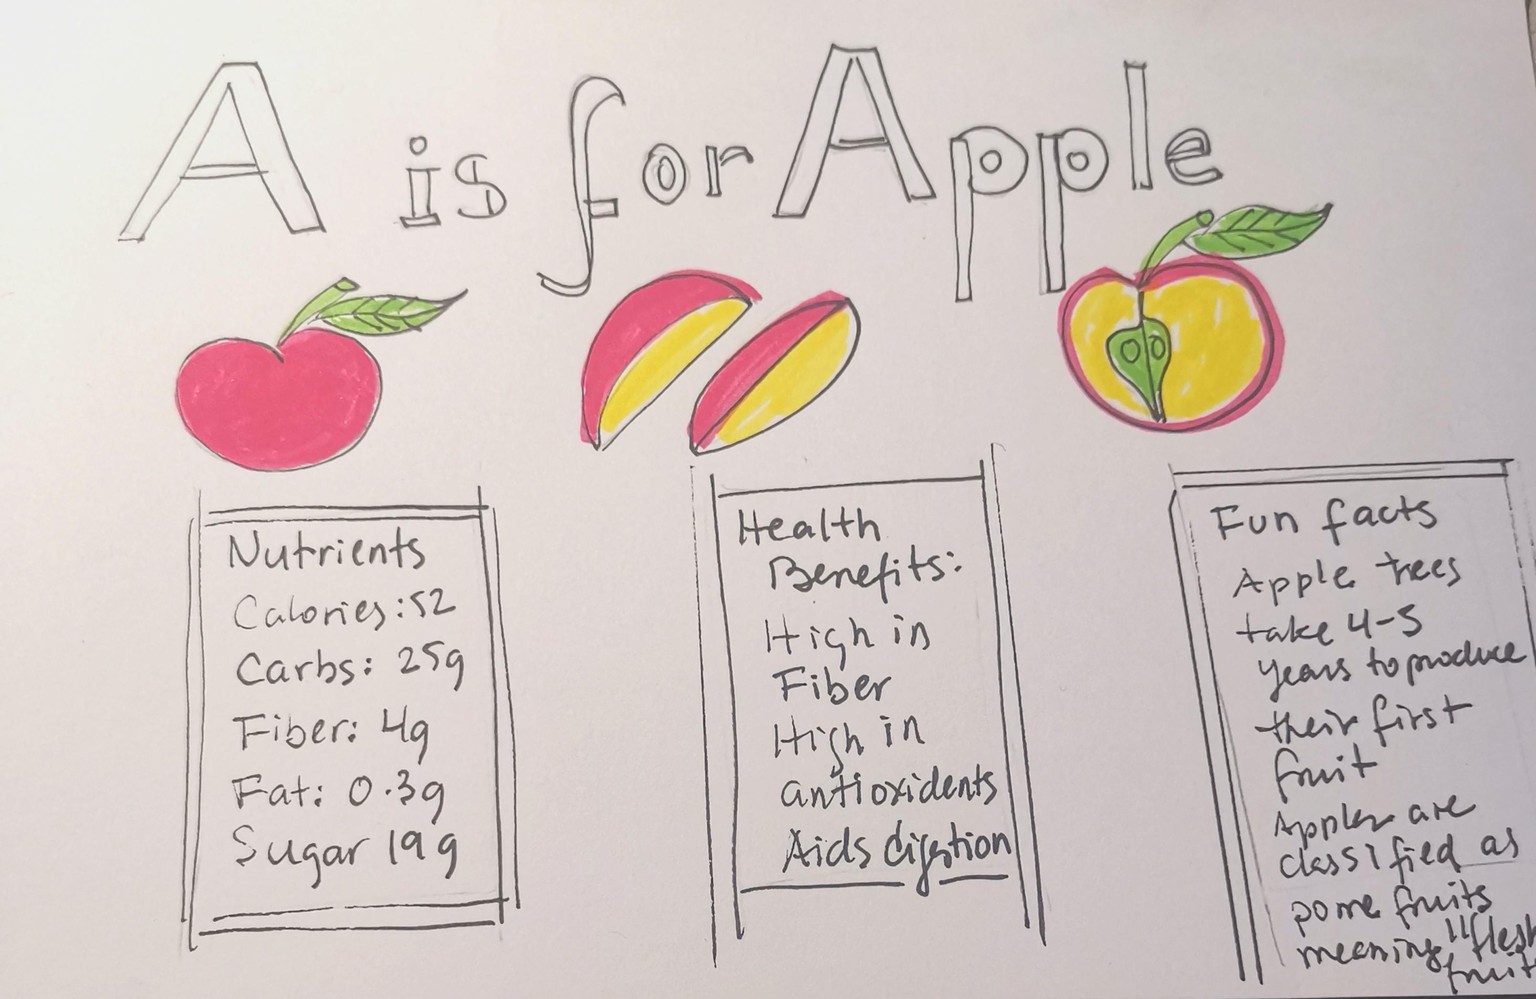 A is for Apple
Nutrients
Calories: 52
Carbs: 25g
Fiber: 4g
Fat: 0.3g
Sugar 19g
Health
Benefits:
High in
Fiber
High in
antioxidents
Aids digestion
Fun facts
Apple trees
take 4-5
years to produce
their first
fruit
Apples are
classified as
pome fruits
meaning "flesh
fruit